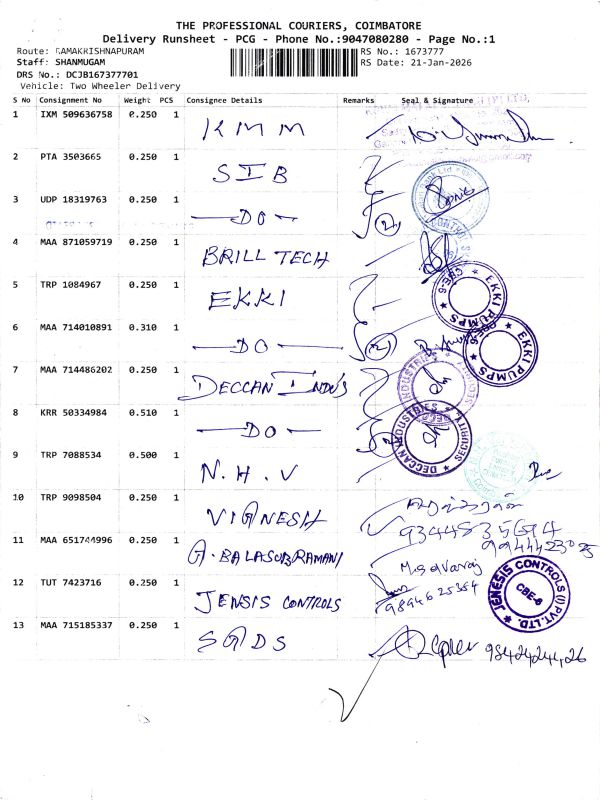 THE PROFESSIONAL COURIERS, COIMBATORE
Delivery Runsheet - PCG - Phone No.:9047080280 - Page No.:1
Route: RAMAKRISHNAPURAM
Staff: SHANMUGAM
DRS No.: DCJB167377701
Vehicle: Two Wheeler Delivery
RS No.: 1673777
RS Date: 21-Jan-2026
S No Consignment No Weight PCS Consignee Details Remarks Seal & Signature
1 IXM 509636758 0.250 1 KMM
2 PTA 3503665 0.250 1 SIB
3 UDP 18319763 0.250 1 —DO— (2)
4 MAA 871059719 0.250 1 BRILL TECH
5 TRP 1084967 0.250 1 EKKI
CBE-6 ★ EKKI PUMPS ★
6 MAA 714010891 0.310 1 —DO— (2)
CBE-6 ★ EKKI PUMPS ★
7 MAA 714486202 0.250 1 DECCAN INDUS
DECCAN INDUSTRIES ★ SECURITY ★
8 KRR 50334984 0.510 1 —DO— 2
DECCAN INDUSTRIES ★ SECURITY ★
9 TRP 7088534 0.500 1 N.H.V
10 TRP 9098504 0.250 1 VIGNESH
9344535694
11 MAA 651744996 0.250 1 G.BALASUBRAMANI
9944423025
M.selvaraj
12 TUT 7423716 0.250 1 JENSIS CONTROLS
9894625354
★ JENESIS CONTROLS (I) PVT.LTD. CBE-6
13 MAA 715185337 0.250 1 SGDS